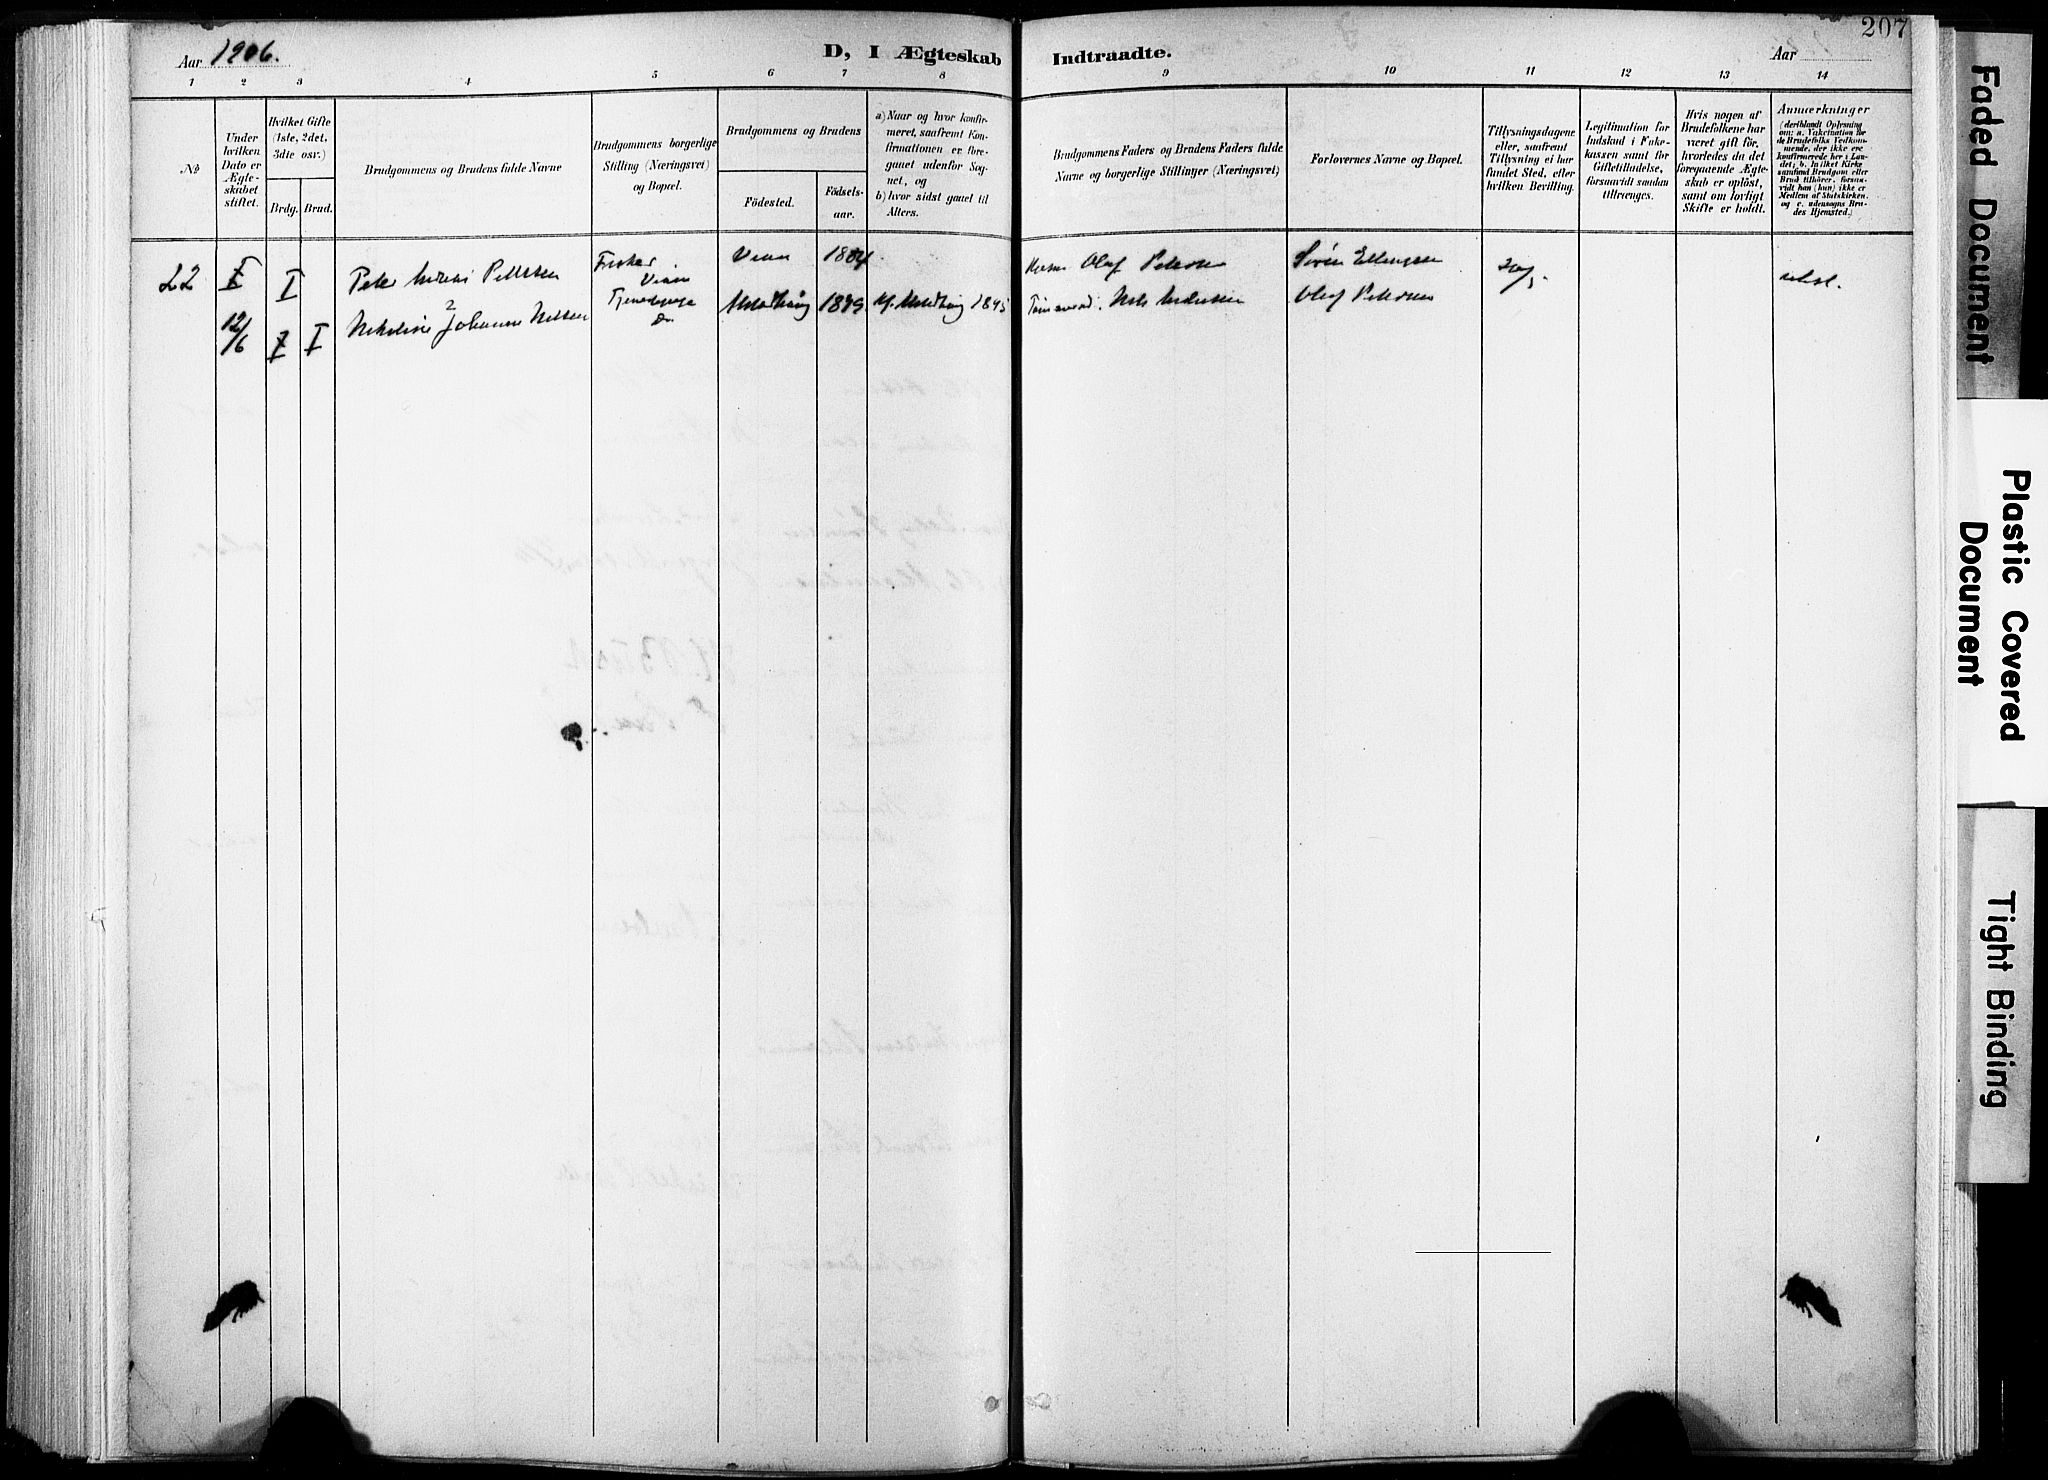 207
Aar 1906.
D, I Ægteskab Indtraadte.
Aar
1 2 3 4 5 6 7 8 9 10 11 12 13 14
No
Under hvilken Dato er Ægteskabet stiftet.
Hvilket Gifte (1ste, 2det, 3dte osv.)
Brdg. Brud.
Brudgommens og Brudens fulde Navne
Brudgommens borgerlige Stilling (Næringsvei) og Bopæl.
Brudgommens og Brudens
Födested.
Födsels-
aar.
a) Naar og hvor konfir-
meret, saafremt Kon-
firmationen er fore-
gaaet udenfor Sog-
net, og
b) hvor sidst gaaet til
Alters.
Brudgommens Faders og Brudens Faders fulde
Navne og borgerlige Stillinger (Næringsvei)
Forlovernes Navne og Bopæl.
Tillysningsdagene
eller, saafremt
Tillysning ei har
fundet Sted, efter
hvilken Bevilling.
Legitimation for
Indskud i Enke-
kassen samt for
Giftetilladelse,
forsaavidt saadan
tiltrænges.
Hvis nogen af
Brudefolkene har
været gift för,
hvorledes da det
foregaaende Ægte-
skab er oplöst,
samt om lovligt
Skifte er holdt.
Anmærkninger
(deriblandt Oplysning
om: a. Vakcination for
de Brudefolks Vedkom-
mende, der ikke ere
konfirmerede her i Lan-
det; b. hvilket Kirke-
samfund Brudgom eller
Brud tilhörer, forsaa-
vidt han (hun) ikke er
Medlem af Statskirken,
og c. udensogns Bru-
des Hjemsted.)
22 I Peter Petersen Fisker 1884 Olaf Petersen Sören Ellingsen 20/5
12/6 I Johanne Nilsen 1879 1895 Nils Andersen Olaf Petersen
Faded Document
Plastic Covered
Document
Tight Binding